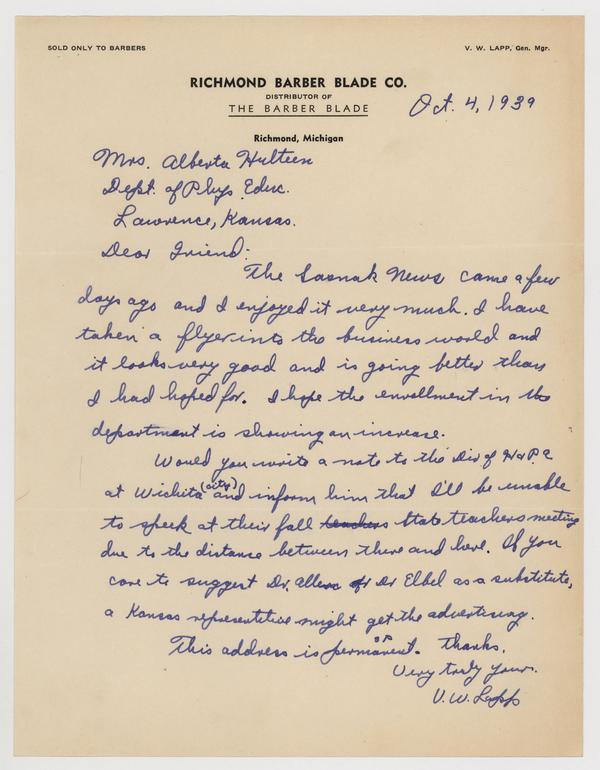 SOLD ONLY TO BARBERS
V. W. LAPP, Gen. Mgr.
RICHMOND BARBER BLADE CO.
DISTRIBUTOR OF
THE BARBER BLADE
Richmond, Michigan
Oct. 4, 1939
Mrs. Alberta Hulteen
Dept. of Phys. Educ.
Lawrence, Kansas.
Dear Friend:
The Sasnak News came a few
days ago and I enjoyed it very much. I have
taken a flyer into the business world and
it looks very good and is going better than
I had hoped for. I hope the enrollment in the
department is showing an increase.
Would you write a note to the Div of H & P. E
at Wichita (city) and inform him that I'll be unable
to speek at their fall teachers State teachers meeting
due to the distance between there and here. If you
care to suggest Dr. Allen or Dr Elbel as a substitute,
a Kansas representitive might get the advertising.
This address is permanent. Thanks.
Very truly yours.
V. W. Lapp